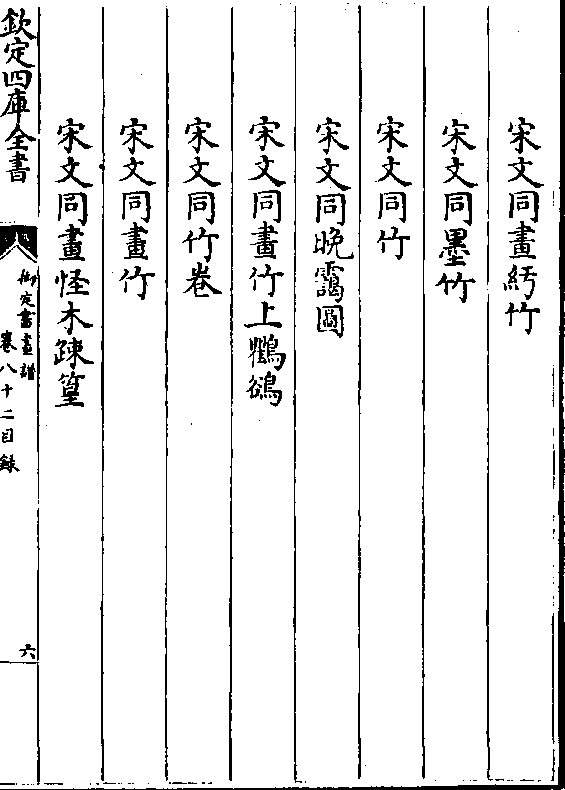 宋文同畫紆竹
宋文同墨竹
宋文同竹
宋文同晚靄圖
宋文同畫竹上鸜鵒
宋文同竹卷
宋文同畫竹
宋文同畫怪木疎篁
欽定四庫全書
御定書畫譜
卷八十二目錄
六